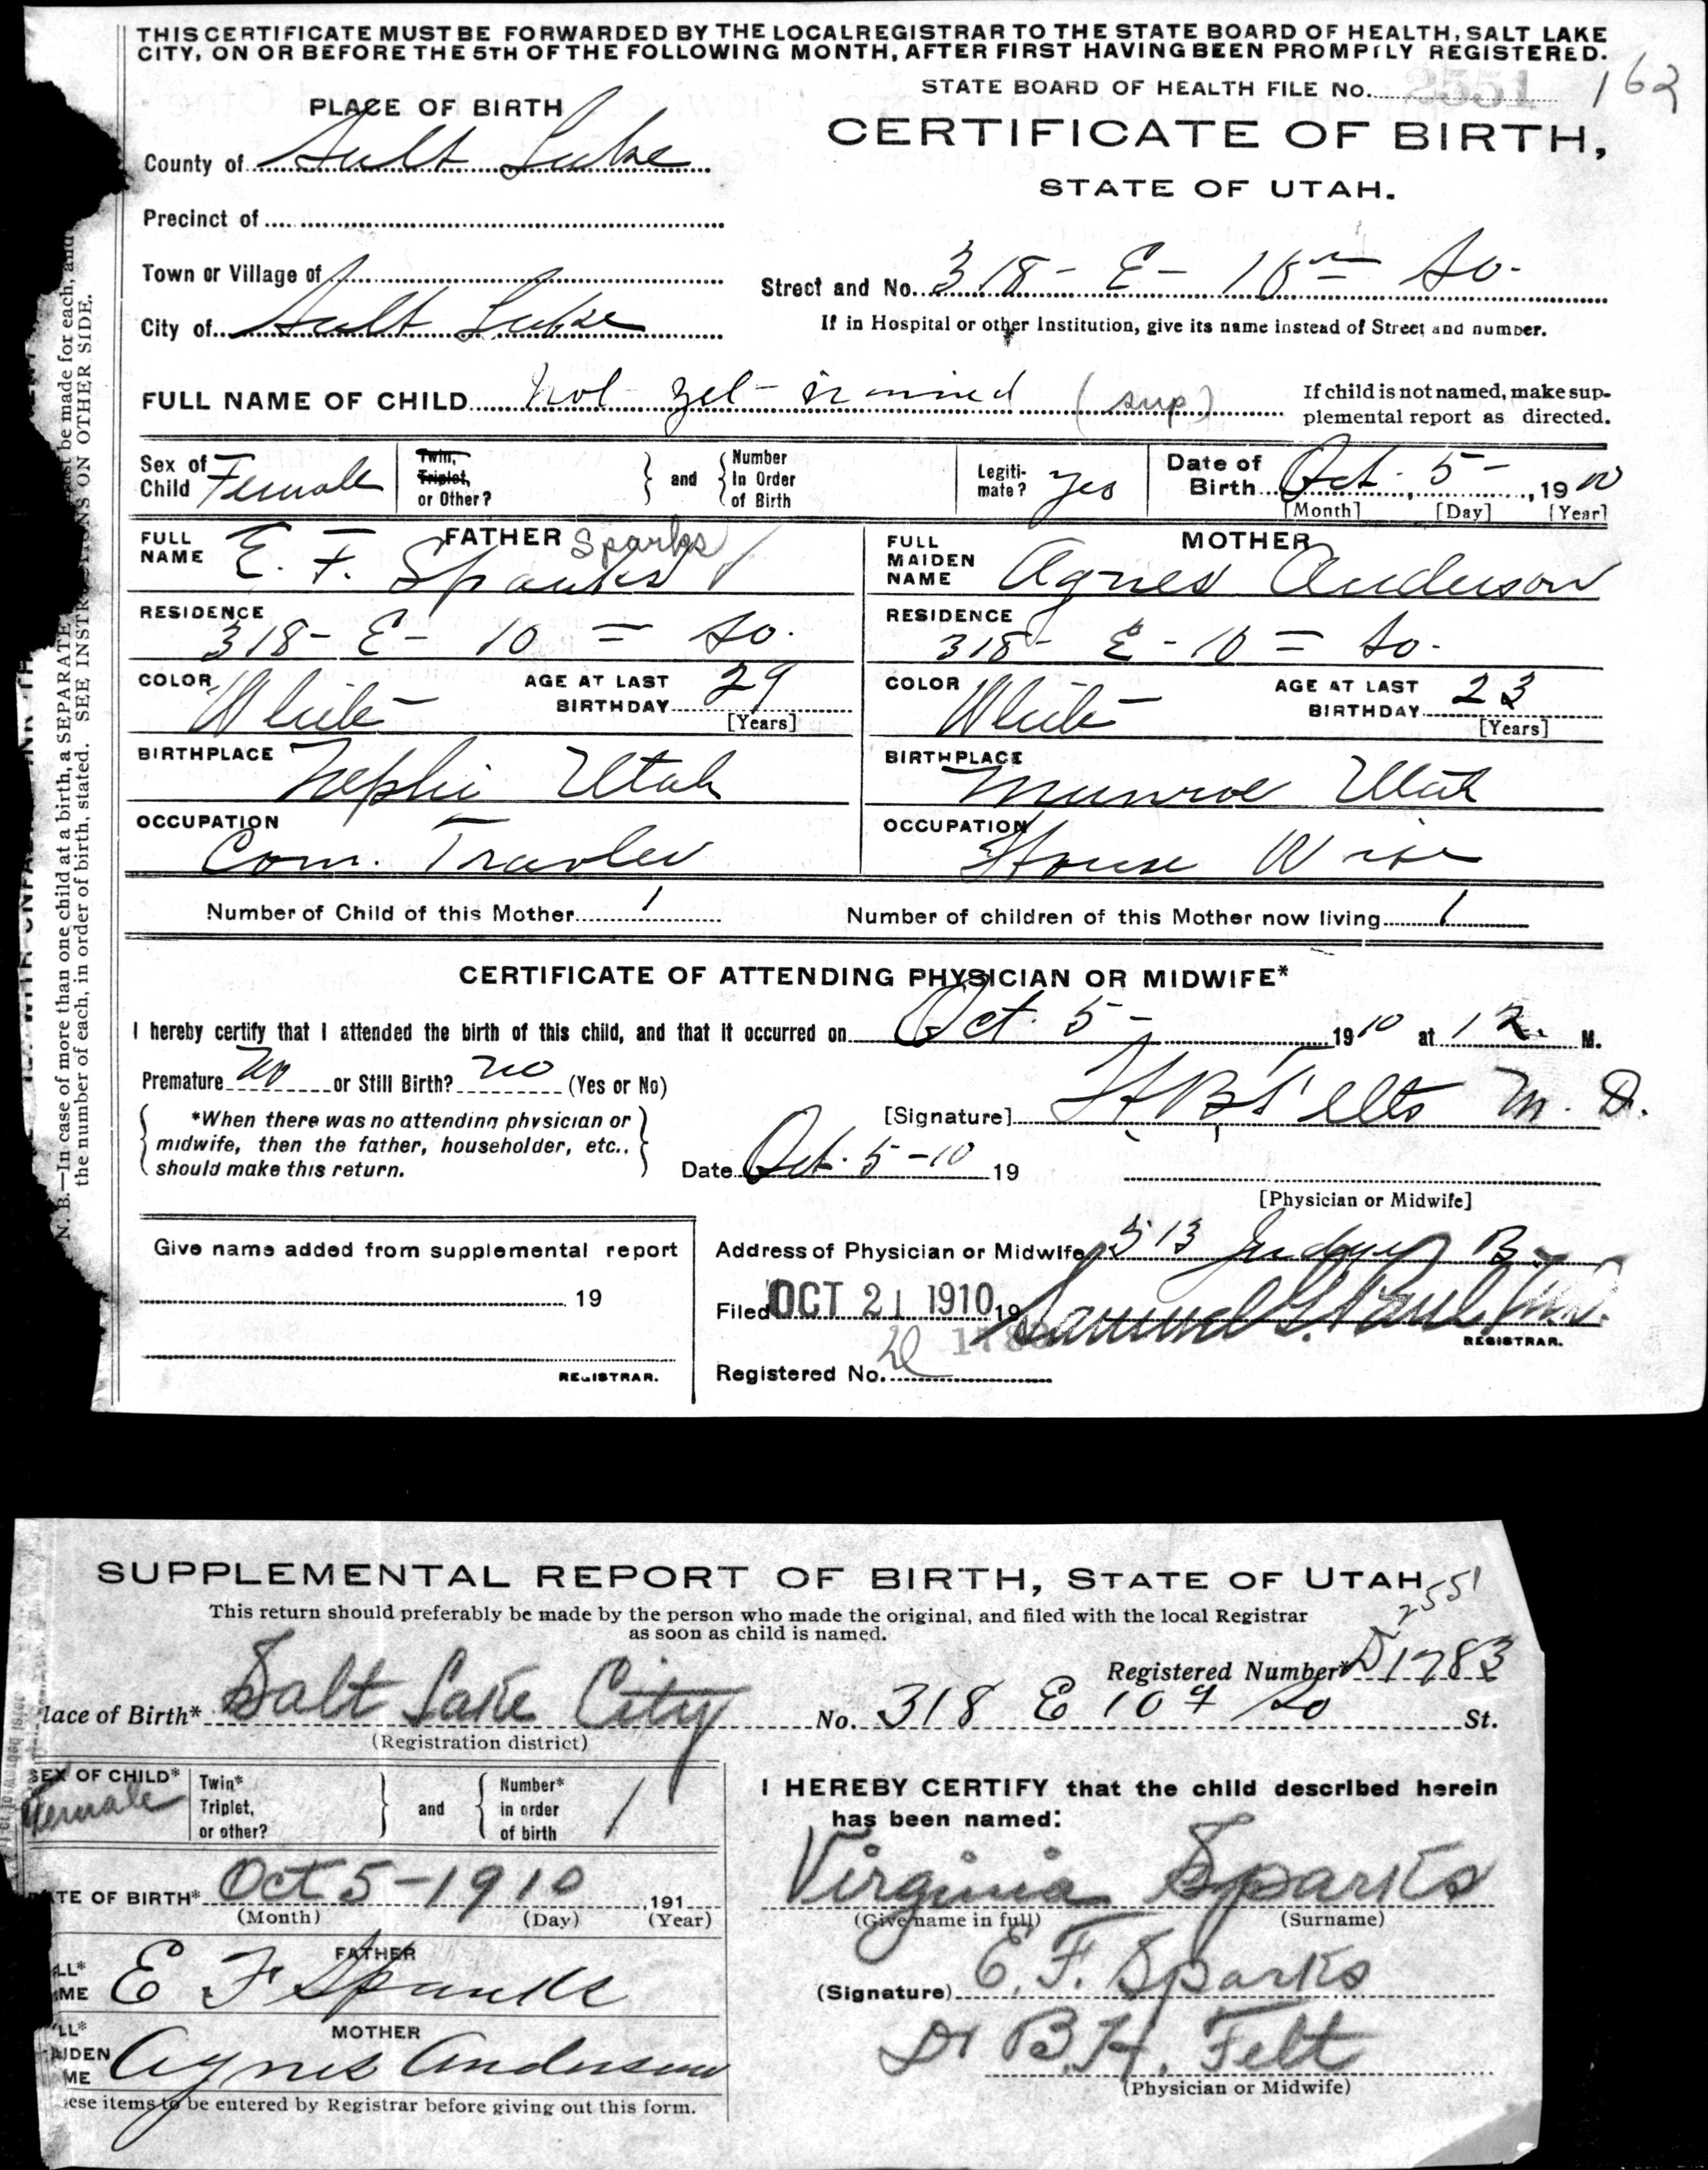 THIS CERTIFICATE MUST BE FORWARDED BY THE LOCAL REGISTRAR TO THE STATE BOARD OF HEALTH, SALT LAKE
CITY, ON OR BEFORE THE 5TH OF THE FOLLOWING MONTH, AFTER FIRST HAVING BEEN PROMPTLY REGISTERED.
STATE BOARD OF HEALTH FILE No. 2551 162
PLACE OF BIRTH
CERTIFICATE OF BIRTH,
County of Salt Lake
STATE OF UTAH.
Precinct of
Town or Village of
Street and No. 318 - E - 10 = So.
City of Salt Lake
If in Hospital or other Institution, give its name instead of Street and number.
FULL NAME OF CHILD Not yet named (sup)
If child is not named, make sup-
plemental report as directed.
Sex of Child Female
Twin, Triplet, or Other?
and
Number In Order of Birth
Legiti-mate? yes
Date of Birth Oct. 5 - , 1910
[Month] [Day] [Year]
FATHER
FULL NAME E. F. Sparks Sparks
MOTHER
FULL MAIDEN NAME Agnes Anderson
RESIDENCE 318 - E - 10 = So.
RESIDENCE 318 - E - 10 = So.
COLOR White AGE AT LAST BIRTHDAY 29 [Years]
COLOR White AGE AT LAST BIRTHDAY 23 [Years]
BIRTHPLACE Nephi Utah
BIRTHPLACE Munroe Utah
OCCUPATION Com. Travler
OCCUPATION House Wife
Number of Child of this Mother 1
Number of children of this Mother now living 1
CERTIFICATE OF ATTENDING PHYSICIAN OR MIDWIFE*
I hereby certify that I attended the birth of this child, and that it occurred on Oct. 5 - 1910 at 12. M.
Premature No or Still Birth? no (Yes or No)
*When there was no attending physician or
midwife, then the father, householder, etc.,
should make this return.
[Signature] Felts M. D.
Date Oct. 5 - 10 19
[Physician or Midwife]
Give name added from supplemental report
19
REGISTRAR.
Address of Physician or Midwife 513 Judge B
Filed OCT 21 1910 19 Samuel G. Paul M.D.
REGISTRAR.
Registered No. D 1783
N. B.—In case of more than one child at a birth, a SEPARATE must be made for each, and
the number of each, in order of birth, stated. SEE INSTRUCTIONS ON OTHER SIDE.
SUPPLEMENTAL REPORT OF BIRTH, STATE OF UTAH
2551
This return should preferably be made by the person who made the original, and filed with the local Registrar
as soon as child is named.
Registered Number* D1783
lace of Birth* Salt Lake City No. 318 E 10 So St.
(Registration district)
SEX OF CHILD* Female
Twin* Triplet, or other?
and
Number* in order of birth 1
I HEREBY CERTIFY that the child described herein
has been named:
Virginia Sparks
(Give name in full) (Surname)
ATE OF BIRTH* Oct 5 - 1910 , 191
(Month) (Day) (Year)
FATHER
LL* ME E F Sparks
(Signature) E. F. Sparks
MOTHER
LL* AIDEN ME Agnes Anderson
Dr B. H. Felt
(Physician or Midwife)
ese items to be entered by Registrar before giving out this form.